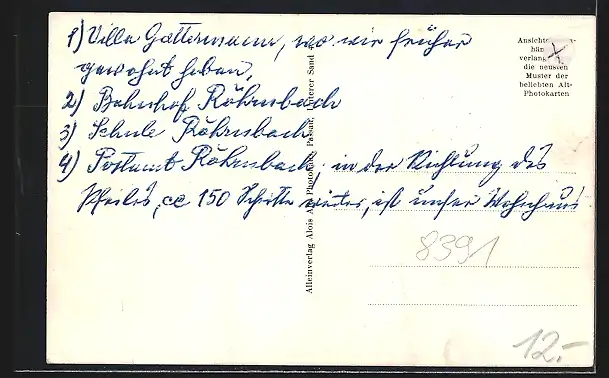 1) Villa Gattermann, wo wir früher
gewohnt haben,
2) Bahnhof Röhrnbach
3) Schule Röhrnbach
4) Postamt Röhrnbach. in der Richtung des
Pfeiles, ca 150 Schritte weiter, ist unser Wohnhaus
8391
12.-
Alleinverlag Alois Alt Photohaus, Passau, Unterer Sand
die neusten
Muster der
beliebten Alt-
Photokarten